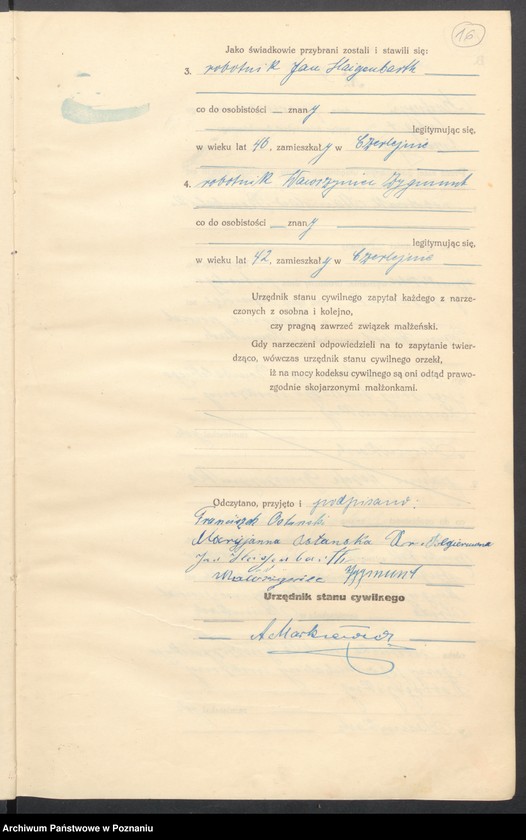 16.
Jako świadkowie przybrani zostali i stawili się:
3. robotnik Jan Haigenbarth
co do osobistości — znany
legitymując się,
w wieku lat 40, zamieszkały w Czerlejnie
4. robotnik Wawrzyniec Zygmunt
co do osobistości — znany
legitymując się,
w wieku lat 42, zamieszkały w Czerlejnie
Urzędnik stanu cywilnego zapytał każdego z narze-
czonych z osobna i kolejno,
czy pragną zawrzeć związek małżeński.
Gdy narzeczeni odpowiedzieli na to zapytanie twier-
dząco, wówczas urzędnik stanu cywilnego orzekł,
iż na mocy kodeksu cywilnego są oni odtąd prawo-
zgodnie skojarzonymi małżonkami.
Odczytano, przyjęto i podpisano:
Franciszek Ostański
Maryjanna Ostańska
Jan
Wawrzyniec Zygmunt
Urzędnik stanu cywilnego
A Markiewicz
Archiwum Państwowe w Poznaniu